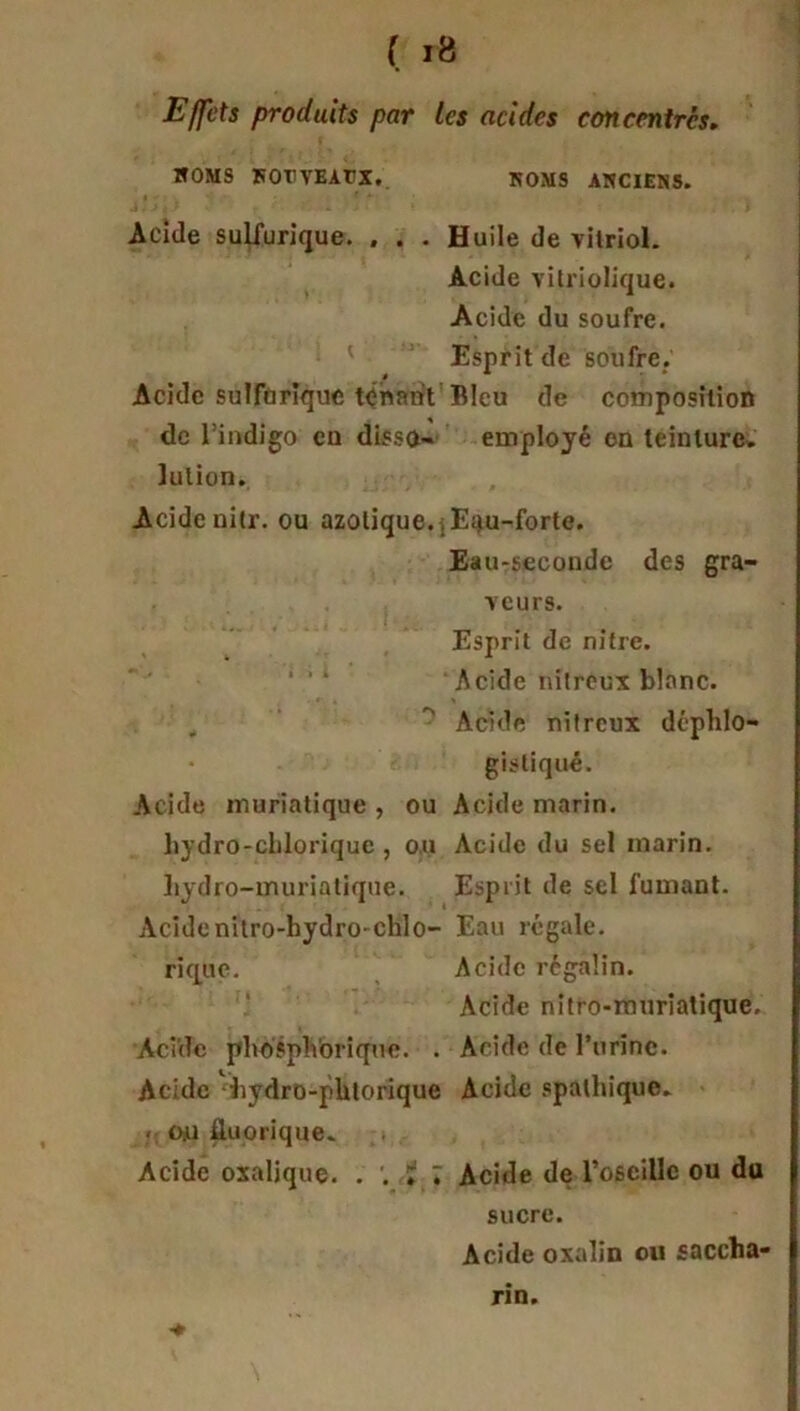 ( 18
Effets produits par les acides concentrés.
NOMS NOUVEAUX. NOMS ANCIENS.
Acide sulfurique. . . . Huile de vitriol.
Acide vitriolique.
Acide du soufre.
Esprit de soufre.
Acide sulfurique tenant Bleu de composition
de l'indigo en disso- employé en teinture.
lution.
Acide nitr. ou azotique. Eau-forte.
Eau-seconde des gra-
veurs.
Esprit de nitre.
Acide nitreux blanc.
Acide nitreux déphlo-
gistiqué.
Acide muriatique, ou Acide marin.
hydro-chlorique, ou Acide du sel marin.
hydro-muriatique. Esprit de sel fumant.
Acide nitro-hydro-chlo- Eau régale.
rique. Acide régalin.
Acide nitro-muriatique.
Acide phosphorique. . Acide de l'urine.
Acide hydro-phtorique Acide spathique.
ou fluorique.
Acide oxalique. . . . . Acide de l'oseille ou du
sucre.
Acide oxalin ou saccha-
rin.